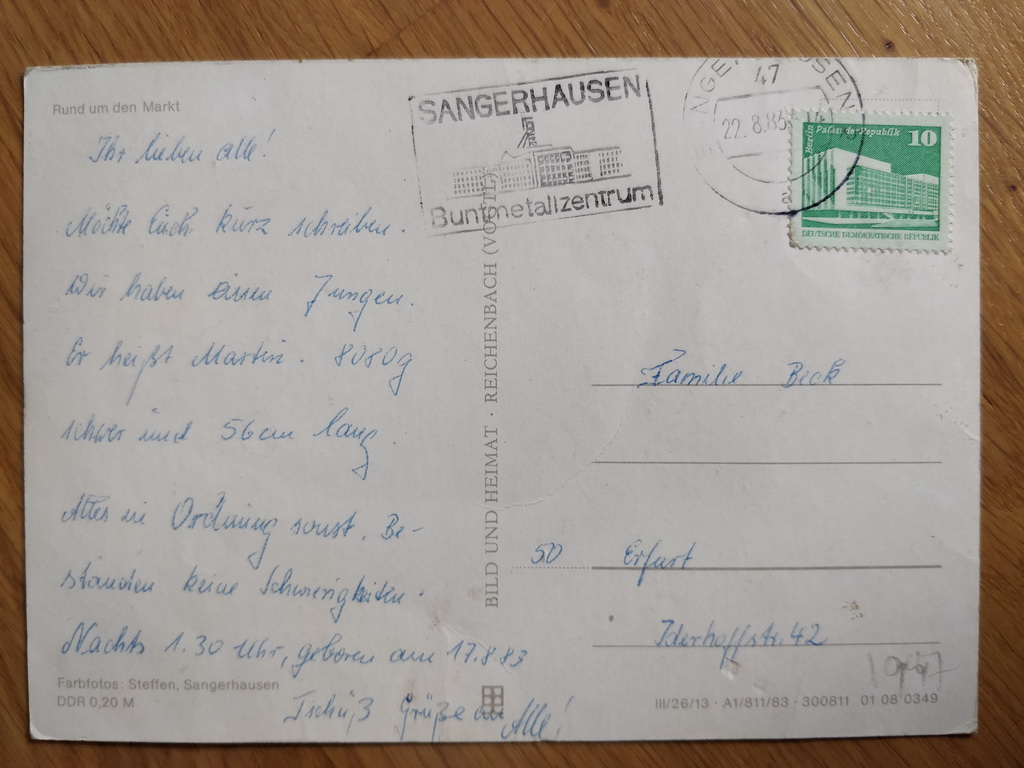 Rund um den Markt
Ihr lieben alle!
Möchte Euch kurz schreiben.
Wir haben einen Jungen.
Er heißt Martin. 8080g
schwer und 56cm lang.
Alles in Ordnung sonst. Be-
standen keine Schwierigkeiten.
Nachts 1.30 Uhr, geboren am 17.8.83
Tschüß Grüße an Alle!
Farbfotos: Steffen, Sangerhausen
DDR 0,20 M
BILD UND HEIMAT · REICHENBACH (VOGTL)
SANGERHAUSEN
Buntmetallzentrum
47
22.8.83
Berlin Palast der Republik 10
DEUTSCHE DEMOKRATISCHE REPUBLIK
Familie Beck
50 Erfurt
42
III/26/13 · A1/811/83 · 300811 01 08 0349